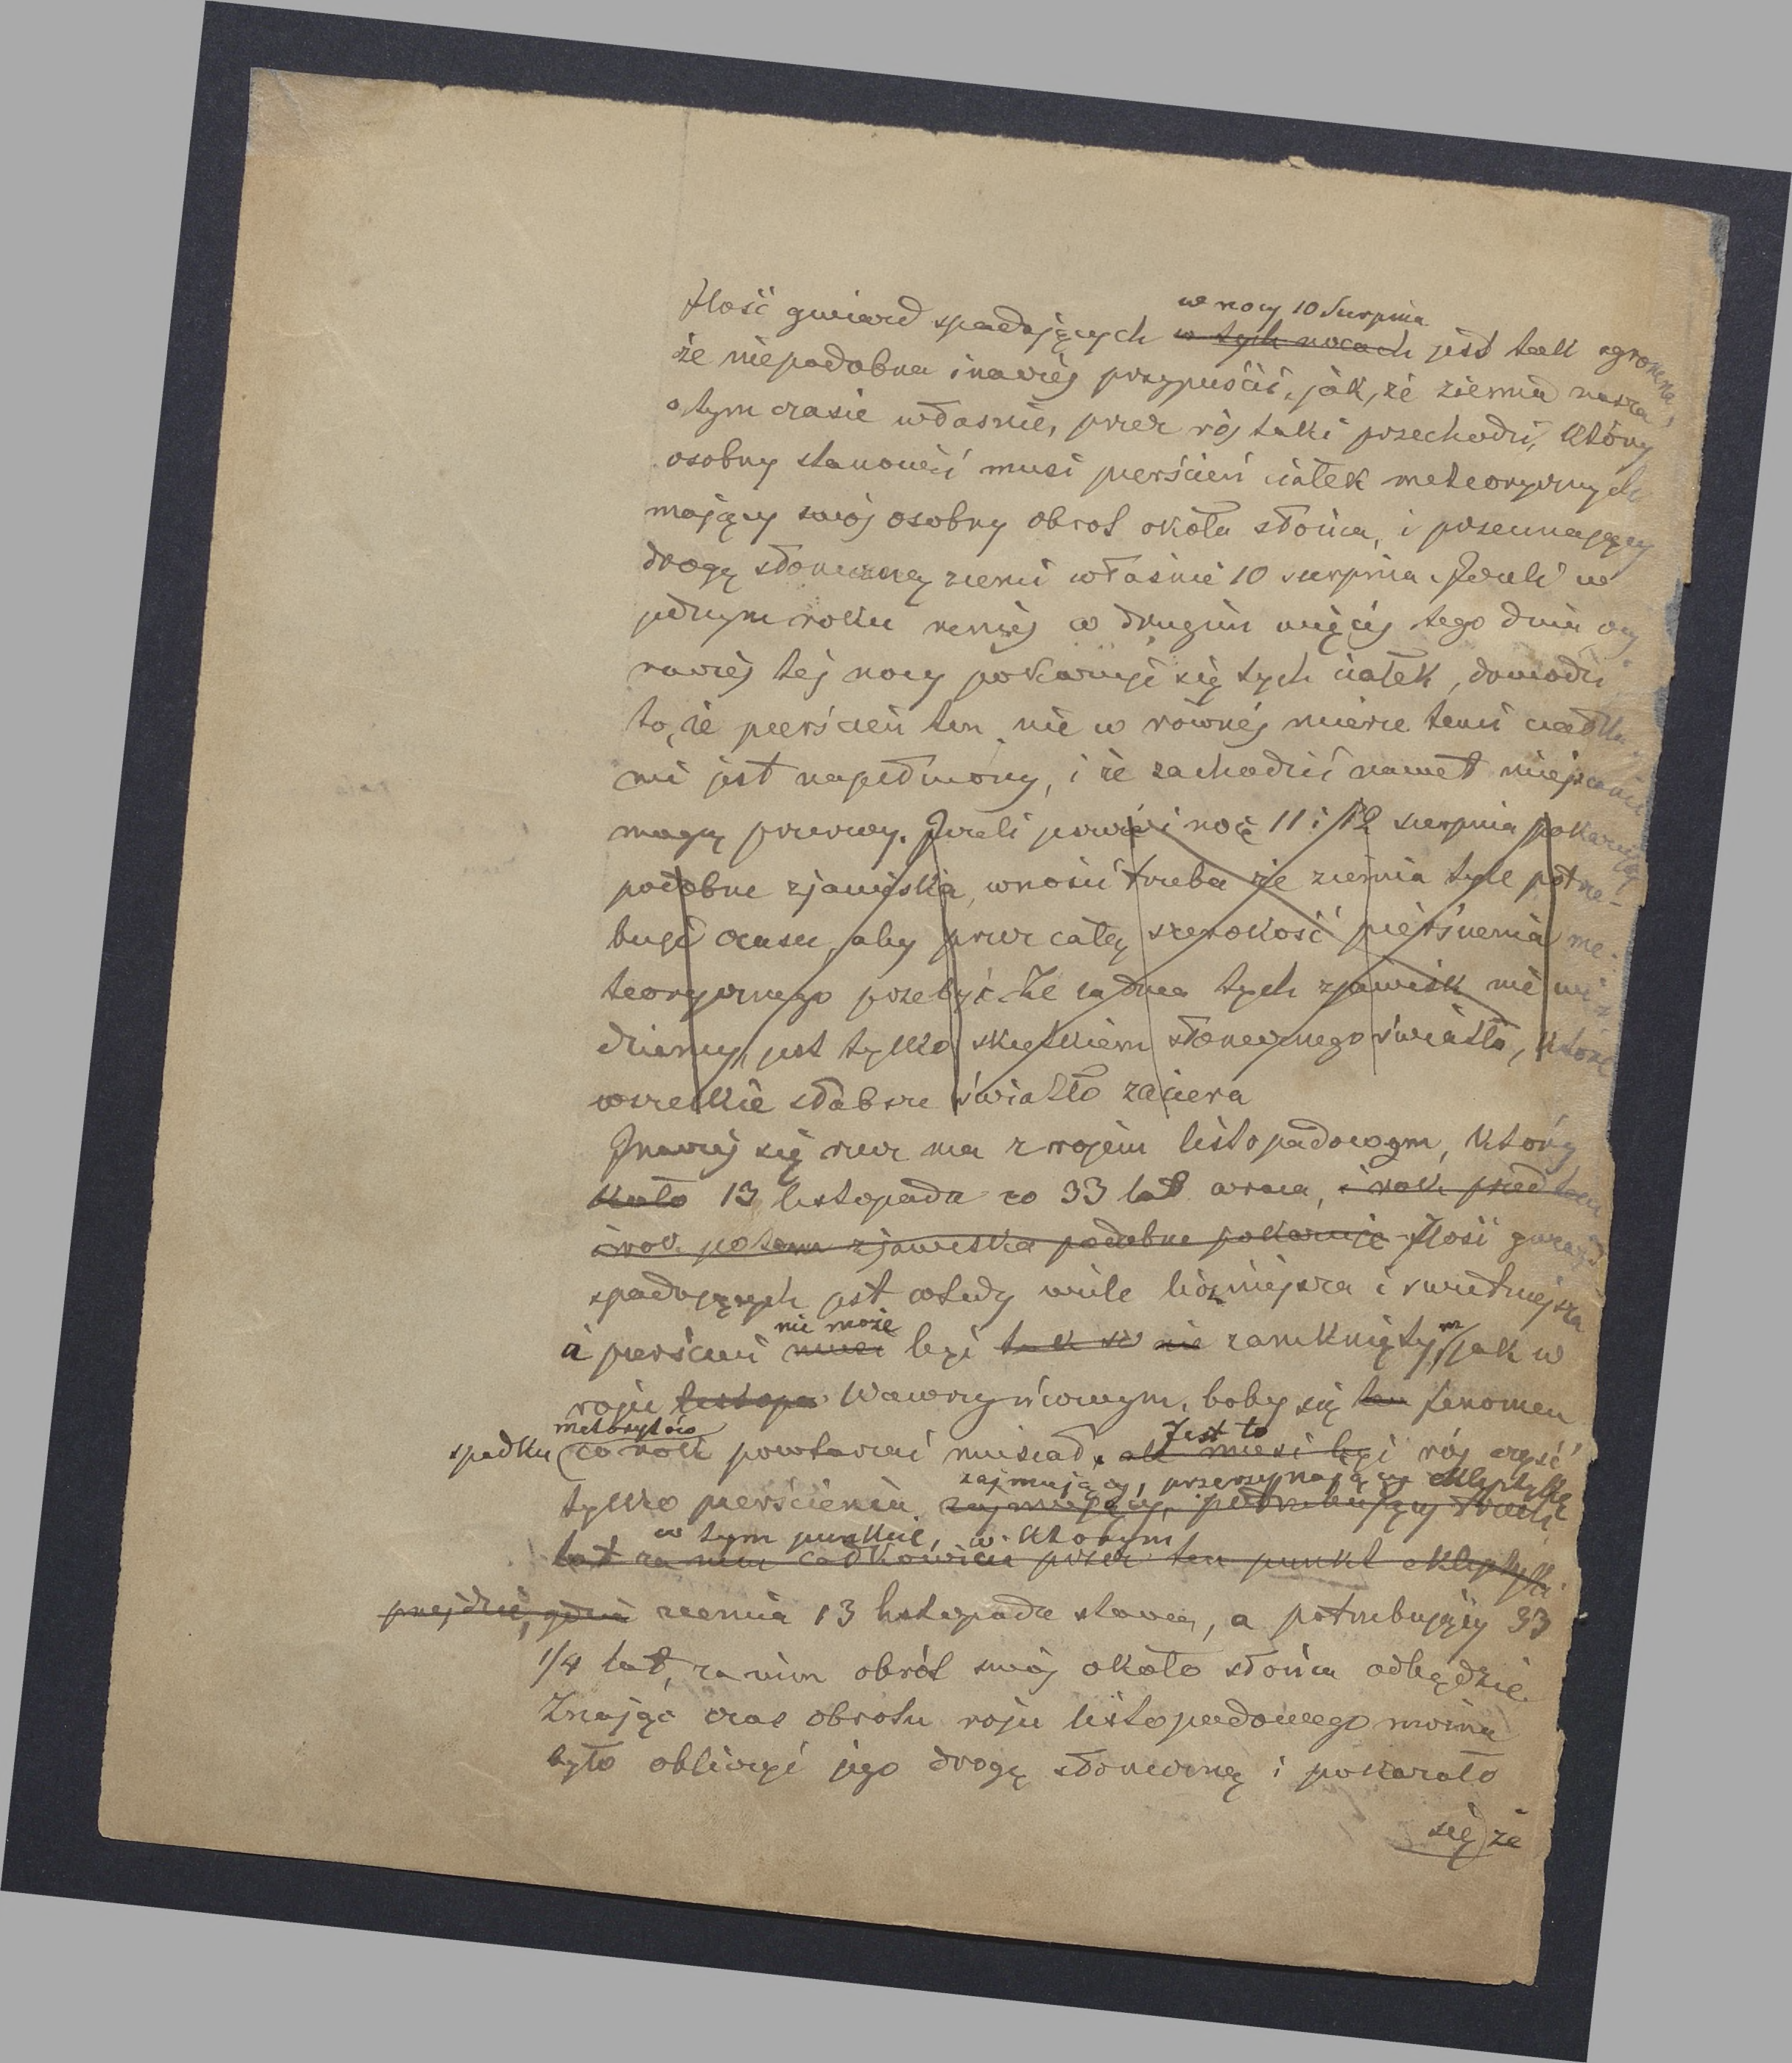 w nocy 10 Sierpnia
Ilość gwiazd spadających w tych nocach jest tak ogromna,
że niepodobna inaczéj przypuścić, jak, że ziemia nasza
o tym czasie właśnie, przez rój taki przechodzi, który
osobny stanowić musi pierścień ciałek meteorycznych
mający swój osobny obrot około słońca, i przecinający
drogę słoneczną ziemi właśnie 10 sierpnia. Jeżeli w
jednym roku mniéj w drugim więcéj tego dnia czy
raczéj téj nocy pokazuje się tych ciałek, dowodzi
to, że pierścień ten nie w równéj mierze temi ciałka
mi jest napełniony, i że zachodzić nawet miejscami
mogą przerwy. Jeżeli jeszcze i noc 11 i 12 sierpnia pokazują
podobne zjawiska, wnosić trzeba że ziemia tyle potrze-
buje czasu, aby przez całą szerokość pierścienia me-
teorycznego przebyć. Że za dnia tych zjawisk nie wi-
dziemy, jest tylko skutkiem słonecznego światła, które
wszelkie słabsze światło zaciera
Inaczéj się rzecz ma z rojem listopadowym, który
koło 13 listopada co 33 lat wraca, i rok przedtem
i rok potem zjawiska podobne pokazuje Ilość gwiazd
spadających jest wtedy wiele liczniejsza i świetniejsza
nie może m
a pierścień musi być tak w nie zamknięty, jak w
roju listopa Wawrzyńcowym, boby się ten fenomen
meteorytów Jest to
spadku co rok powtarzać musiał, ale musi być rój część
zajmujący, przerzynający ekliptykę
tylko pierścienia zajmujący, potrzebujący trzech
w tym punkcie, w którym
lat za nim całkowicie przez ten punkt ekliptyki
przejdzie, gdzie ziemia 13 listopada stawa, a potrzebujący 33
1/4 lat, za nim obrót swój około słońca odbędzie.
Znając czas obrotu roju listopadowego można
było obliczyć jego drogę słoneczną i pokazało
się że